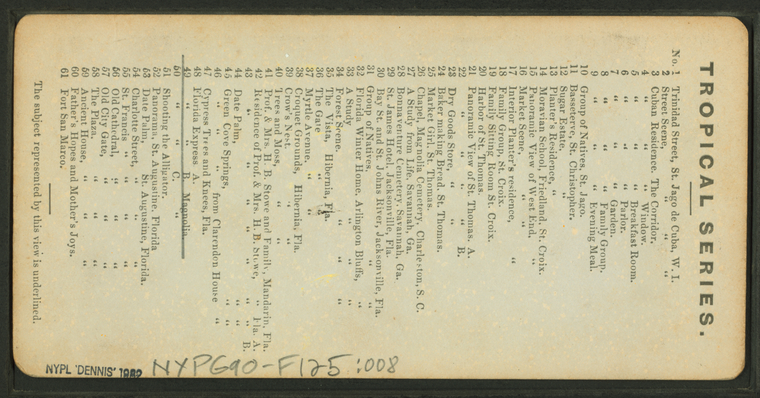 TROPICAL SERIES.
No. 1 Trinidad Street, St. Jago de Cuba, W. I.
2 Street Scene, " " "
3 Cuban Residence. The Corridor.
4 " " Window.
5 " " Breakfast Room.
6 " " Parlor.
7 " " Garden.
8 " " Family Group.
9 " " Evening Meal.
10 Group of Natives, St. Jago.
11 Basseterre, St. Christopher.
12 Sugar Estate, "
13 Planter's Residence, "
14 Moravian School, Friedland, St. Croix.
15 Panoramic View of West End, "
16 Market Scene, "
17 Interior Planter's residence, "
18 Family Group, St. Croix.
19 Family Sitting Room St. Croix.
20 Harbor of St. Thomas.
21 Panoramic View of St. Thomas, A.
22 " " " B.
23 Dry Goods Store, "
24 Baker making Bread, St. Thomas.
25 Market Girl, St. Thomas.
26 Chapel, Magnolia Cemetery, Charleston, S. C.
27 A Study from Life, Savannah, Ga.
28 Bonnaventure Cemetery, Savannah, Ga.
29 St. James Hotel, Jacksonville, Fla.
30 Bay St. and St. Johns River, Jacksonville, Fla.
31 Group of Natives, " "
32 Florida Winter Home, Arlington Bluffs, "
33 A Study, " "
34 Forest Scene. " "
35 The Vista, Hibernia, Fla.
36 The Gate " "
37 Myrtle Avenue, " "
38 Croquet Grounds, Hibernia, Fla.
39 Crow's Nest, " "
40 Trees and Moss, " "
41 Prof. & Mrs. H. B. Stowe and Family, Mandarin, Fla.
42 Residence of Prof. & Mrs. H. B. Stowe, " Fla. A.
43 " " " B.
44 Date Palm, " "
45 Green Cove Springs, "
46 " " from Clarendon House "
47 Cypress Trees and Knees, Fla.
48 Florida Express A.
49 " " B. Magnolia.
50 " " C. "
51 Shooting the Alligator.
52 Panorama, St. Augustine, Florida
53 Date Palm, St. Augustine, Florida.
54 Charlotte Street, " "
55 St. Francis " " "
56 Old Cathedral, " "
57 Old City Gate, " "
58 The Plaza, " "
59 Ancient House, " "
60 Father's Hopes and Mother's Joys.
61 Fort San Marco.
The subject represented by this view is underlined.
NYPL 'DENNIS'
NYPG90-F125:008